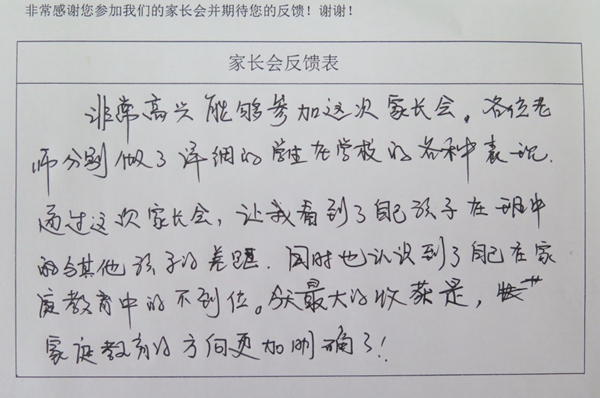 非常感谢您参加我们的家长会并期待您的反馈！谢谢！
家长会反馈表
非常高兴能够参加这次家长会。各位老
师分别做了详细的学生在学校的各种表现.
通过这次家长会，让我看到了自己孩子在班中
与其他孩子的差距.同时也认识到了自己在家
庭教育中的不到位。今天最大的收获是，
家庭教育的方向更加明确了！